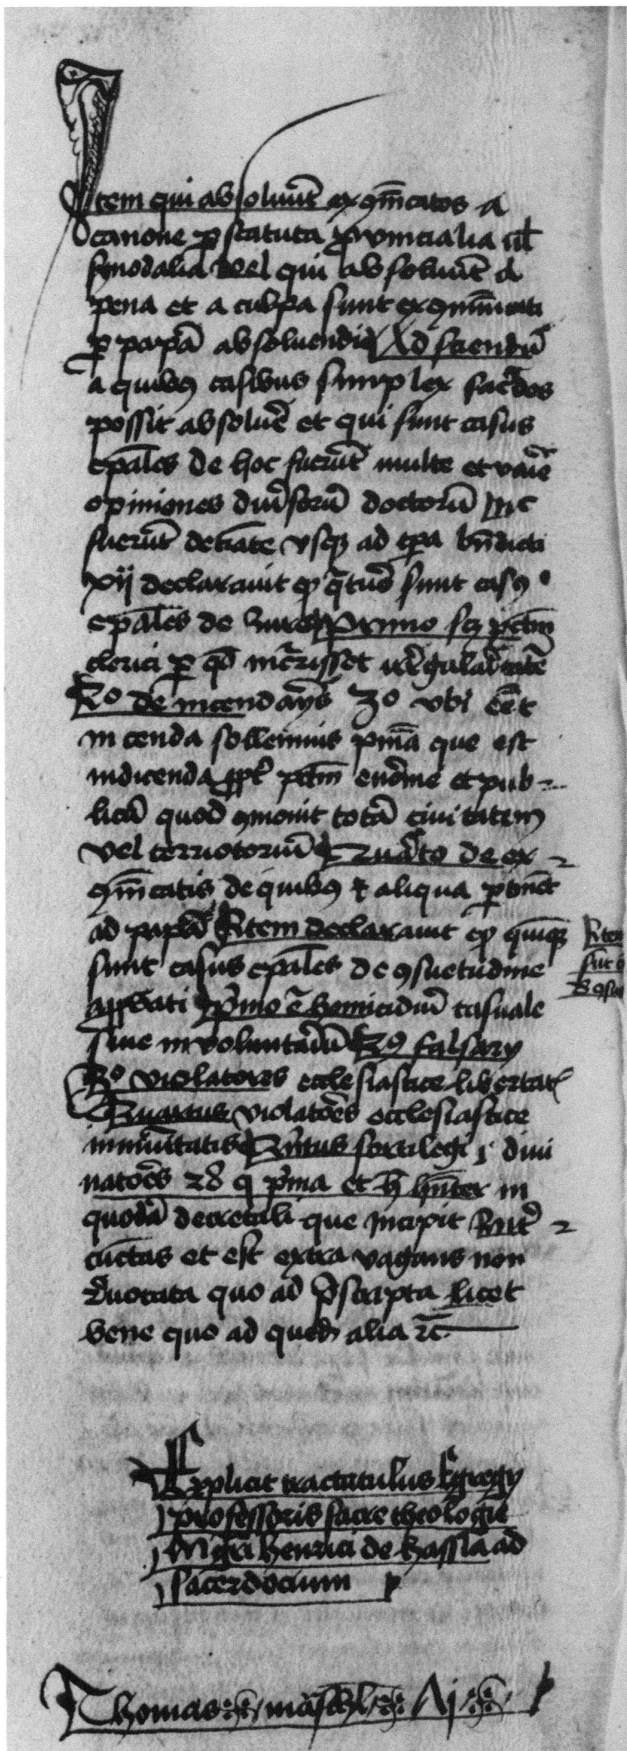 Item qui absoluūt exꝯmūicatos a
canone ꝑ statuta ꝓvincialia ul̄
synodalia Vel qui absoluūt a
pena et a culpa sunt exꝯmūicati
ꝑ papā absoluendi Ad sciendū
a quibꝰ casibus simplex sac͛dos
possit absolu͛e et qui sunt casus
ep̄ales de hoc fuer̄ūt multe et vaīe
opiniones diu͛sorū doctorū
fuer̄ūt usqꝫ ad tꝑa bn̄dicti
xij declarauit ꝙ q̄tuor sunt casꝰ
ep̄ales de iure Primo pctm̄
clerici ꝑ qd̄ incrisset irregularitatē
2º de incendarijs 3º vbi eēt
incenda sollemnis pnīa que est
indicenda ꝓpt͛ pctm̄ enorme et pub-
licū quod ꝯmouit totā ciuitatem
vel territorium Quarto de ex-
ꝯmūicatis de quibꝰ aliqua ꝑtinēt
ad papā Item declarauit ꝙ quinqꝫ
sunt casus ep̄ales de ꝯsuetudine
aꝓbati Primo ē homicidiū casuale
siue inuoluntariū 2º falsarij
3º violatores ecclesiastice libertat͛
Quartus violatōes ecclesiastice
inmūitatis Quītus sortilegi diui
natōes et in
quodā decretali que incipit Int͛
cūctas et est extra vagans non
reuocata quo ad p̄scripta licet
bene quo ad quedā alia ꝛc̄
Explicit tractatulus Egregij
professoris sacre theologie
Mgr̄i henrici de hassia ad
sacerdocium
Item
sūt
Thomas